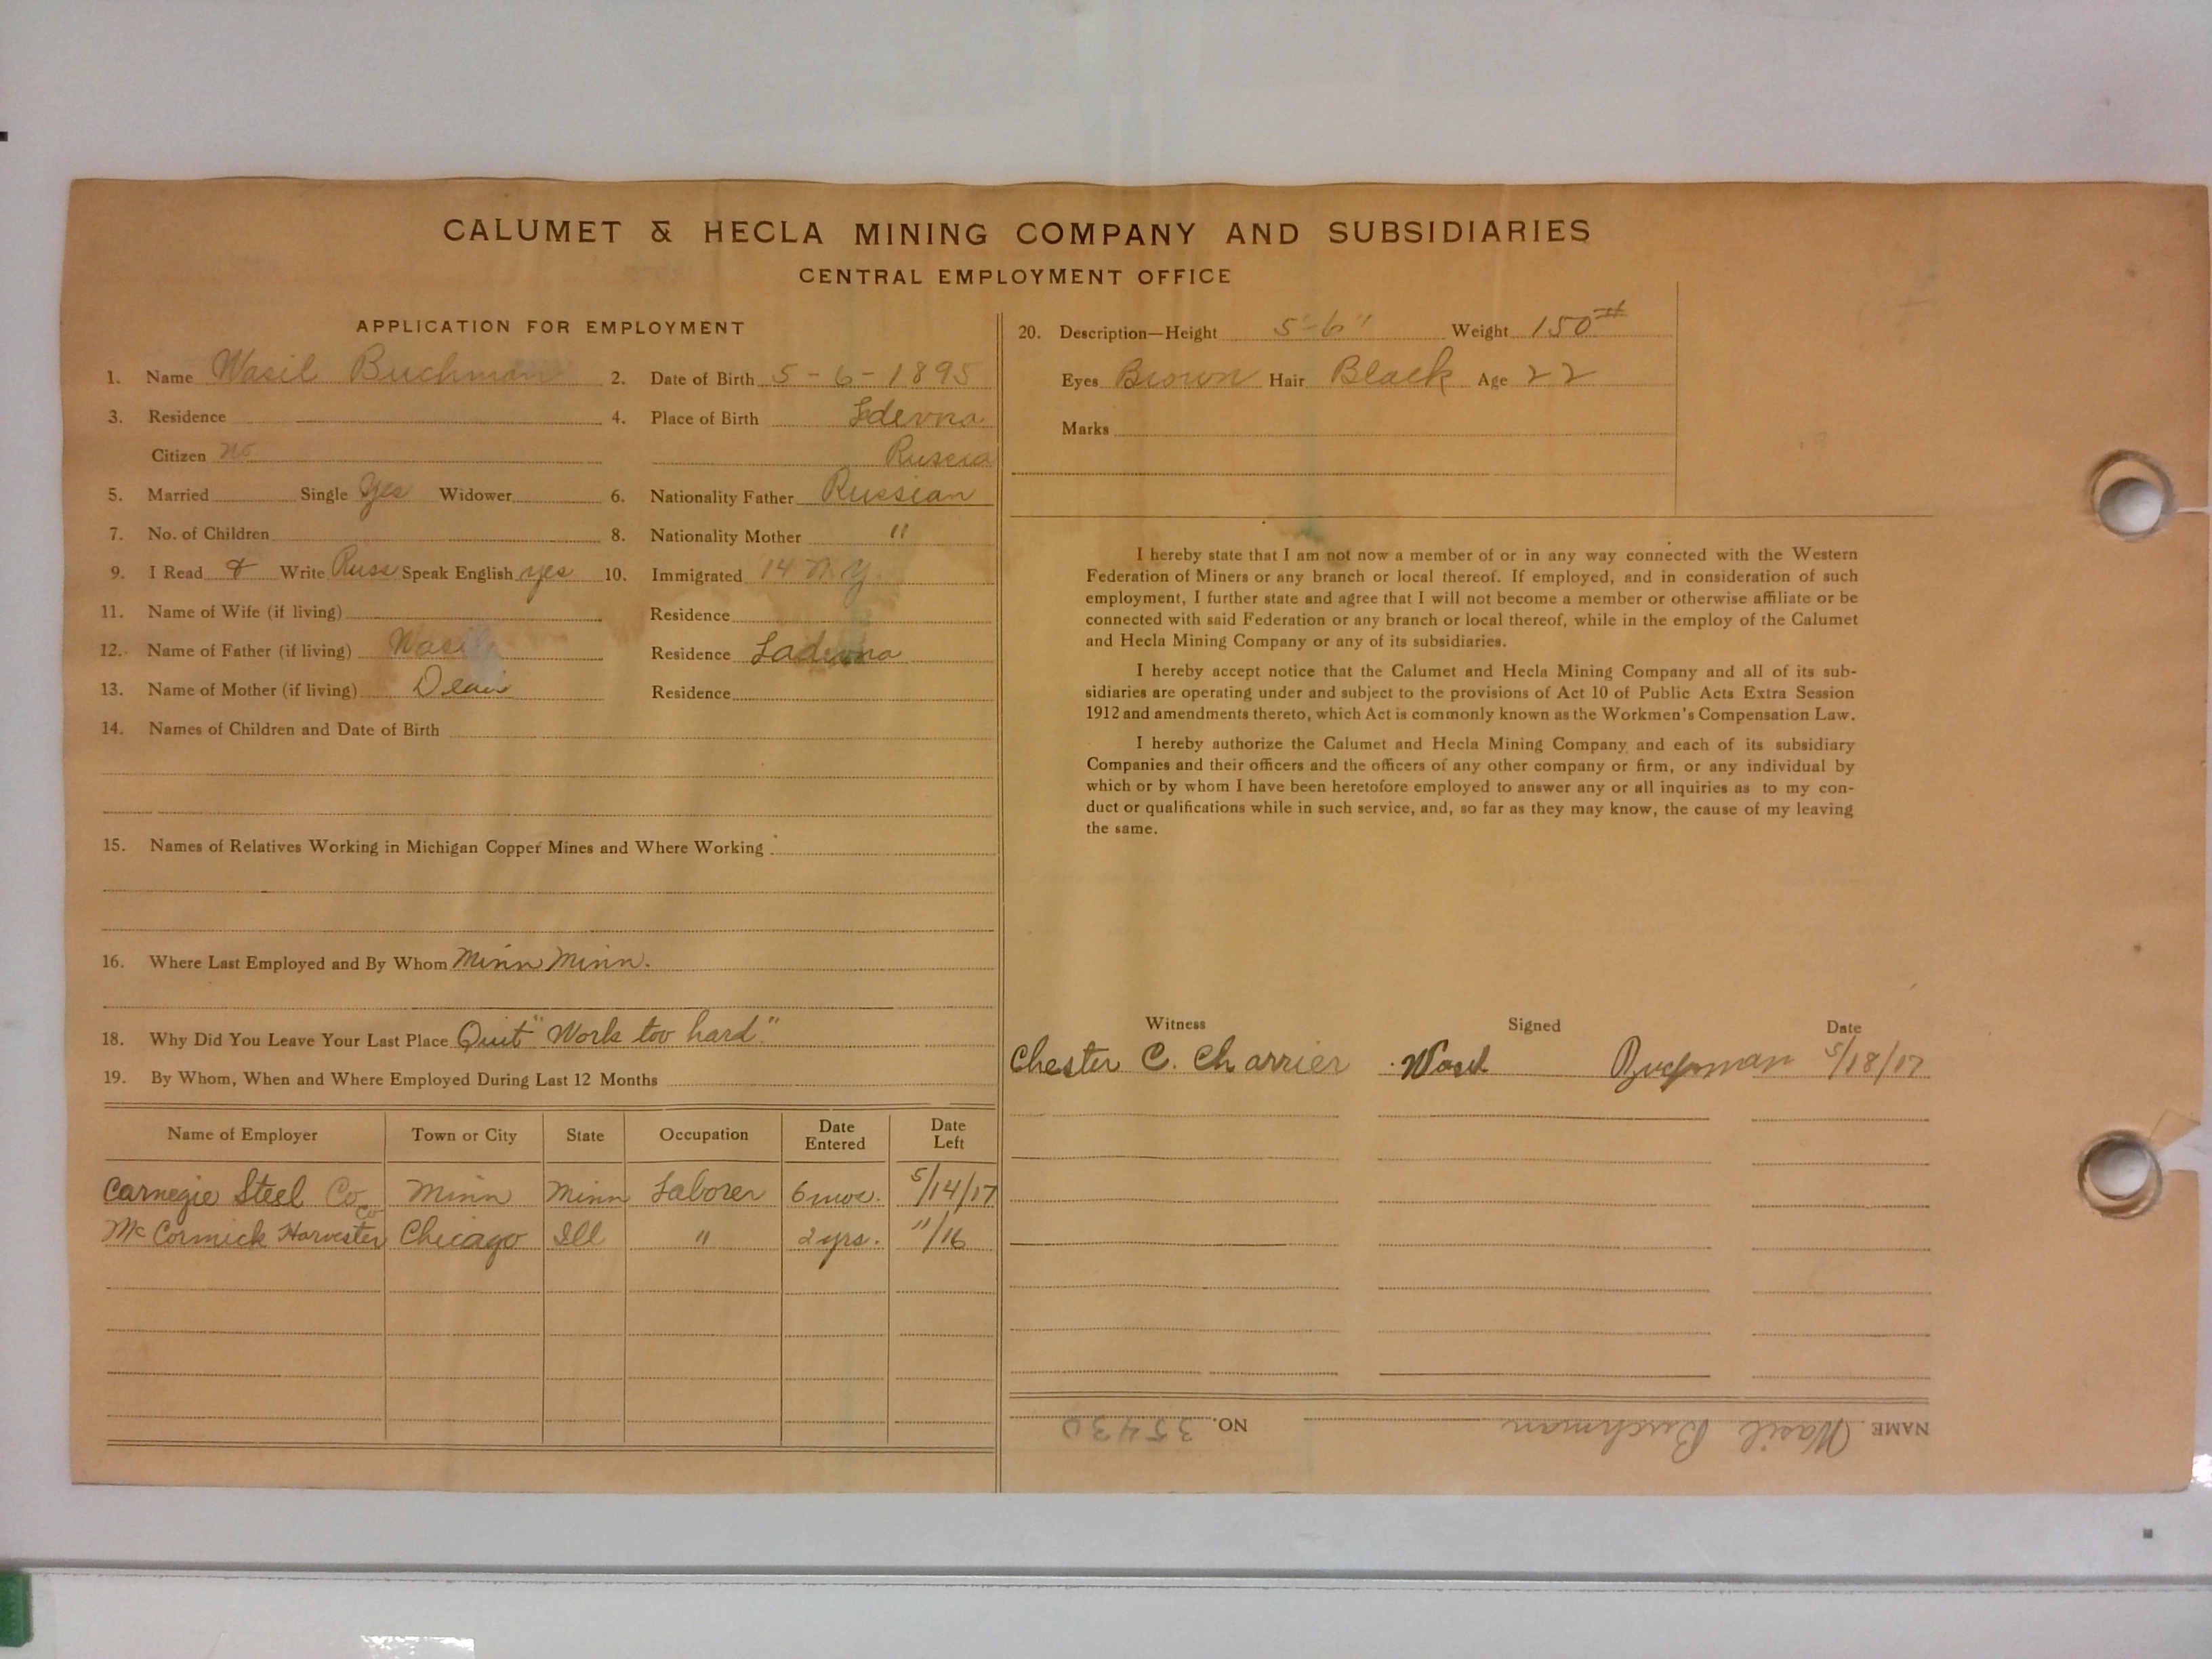 CALUMET & HECLA MINING COMPANY AND SUBSIDIARIES
CENTRAL EMPLOYMENT OFFICE
APPLICATION FOR EMPLOYMENT
1. Name Wasil Buchman 2. Date of Birth 5-6-1895
3. Residence 4. Place of Birth
Citizen no Russia
5. Married Single Yes Widower 6. Nationality Father Russian
7. No. of Children 8. Nationality Mother "
9. I Read & Write Russ Speak English yes 10. Immigrated 14 N.Y.
11. Name of Wife (if living) Residence
12. Name of Father (if living) Wasil Residence
13. Name of Mother (if living) Residence
14. Names of Children and Date of Birth
15. Names of Relatives Working in Michigan Copper Mines and Where Working
16. Where Last Employed and By Whom Minn Minn.
18. Why Did You Leave Your Last Place Quit "Work too hard"
19. By Whom, When and Where Employed During Last 12 Months
Name of Employer Town or City State Occupation Date Entered Date Left
Carnegie Steel Co Minn Minn Laborer 6 mos. 5/14/17
McCormick Harvester Co Chicago Ill " 2 yrs. "/16
20. Description—Height 5'-6" Weight 150#
Eyes Brown Hair Black Age 22
Marks
I hereby state that I am not now a member of or in any way connected with the Western
Federation of Miners or any branch or local thereof. If employed, and in consideration of such
employment, I further state and agree that I will not become a member or otherwise affiliate or be
connected with said Federation or any branch or local thereof, while in the employ of the Calumet
and Hecla Mining Company or any of its subsidiaries.
I hereby accept notice that the Calumet and Hecla Mining Company and all of its sub-
sidiaries are operating under and subject to the provisions of Act 10 of Public Acts Extra Session
1912 and amendments thereto, which Act is commonly known as the Workmen's Compensation Law.
I hereby authorize the Calumet and Hecla Mining Company and each of its subsidiary
Companies and their officers and the officers of any other company or firm, or any individual by
which or by whom I have been heretofore employed to answer any or all inquiries as to my con-
duct or qualifications while in such service, and, so far as they may know, the cause of my leaving
the same.
Witness Signed Date
Chester C. Charrier Wasil Buchman 5/18/17
NAME Wasil Buchman NO. 35430